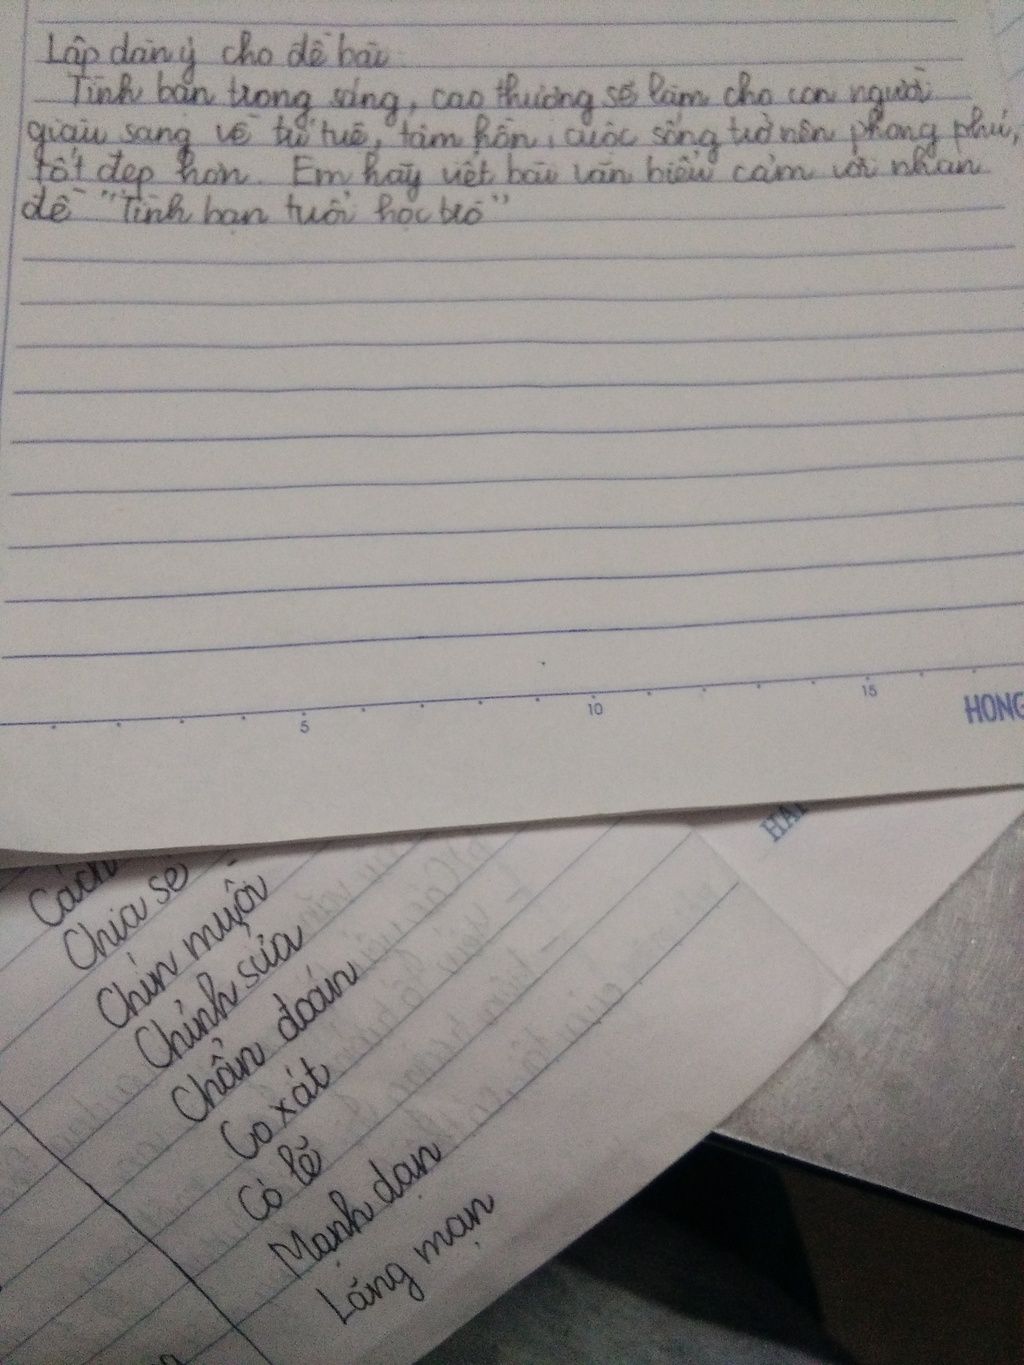 Lập dàn ý cho đề bài
Tình bạn trong sáng, cao thượng sẽ làm cho con người
giàu sang về trí tuệ, tâm hồn, cuộc sống trở nên phong phú,
tốt đẹp hơn. Em hãy viết bài văn biểu cảm với nhan
đề "Tình bạn tuổi học trò"
5
10
15
HONG
HAI
Cách
Chia sẻ
Chín muồi
Chỉnh sửa
Chẩn đoán
Cọ xát
Có lẽ
Mạnh dạn
Lãng mạn